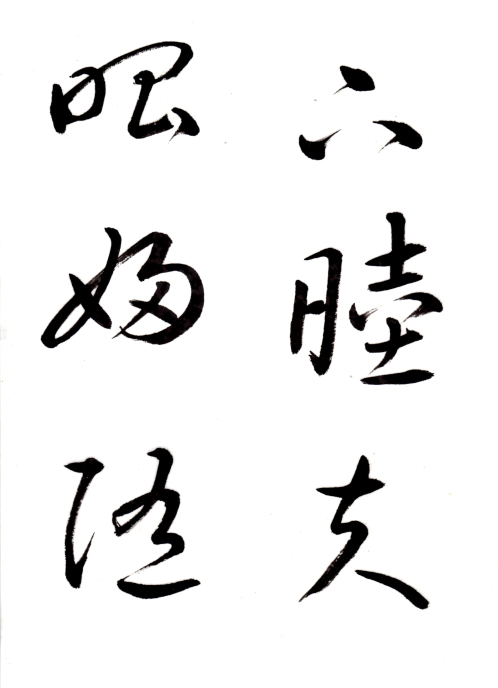 下睦夫
唱婦随